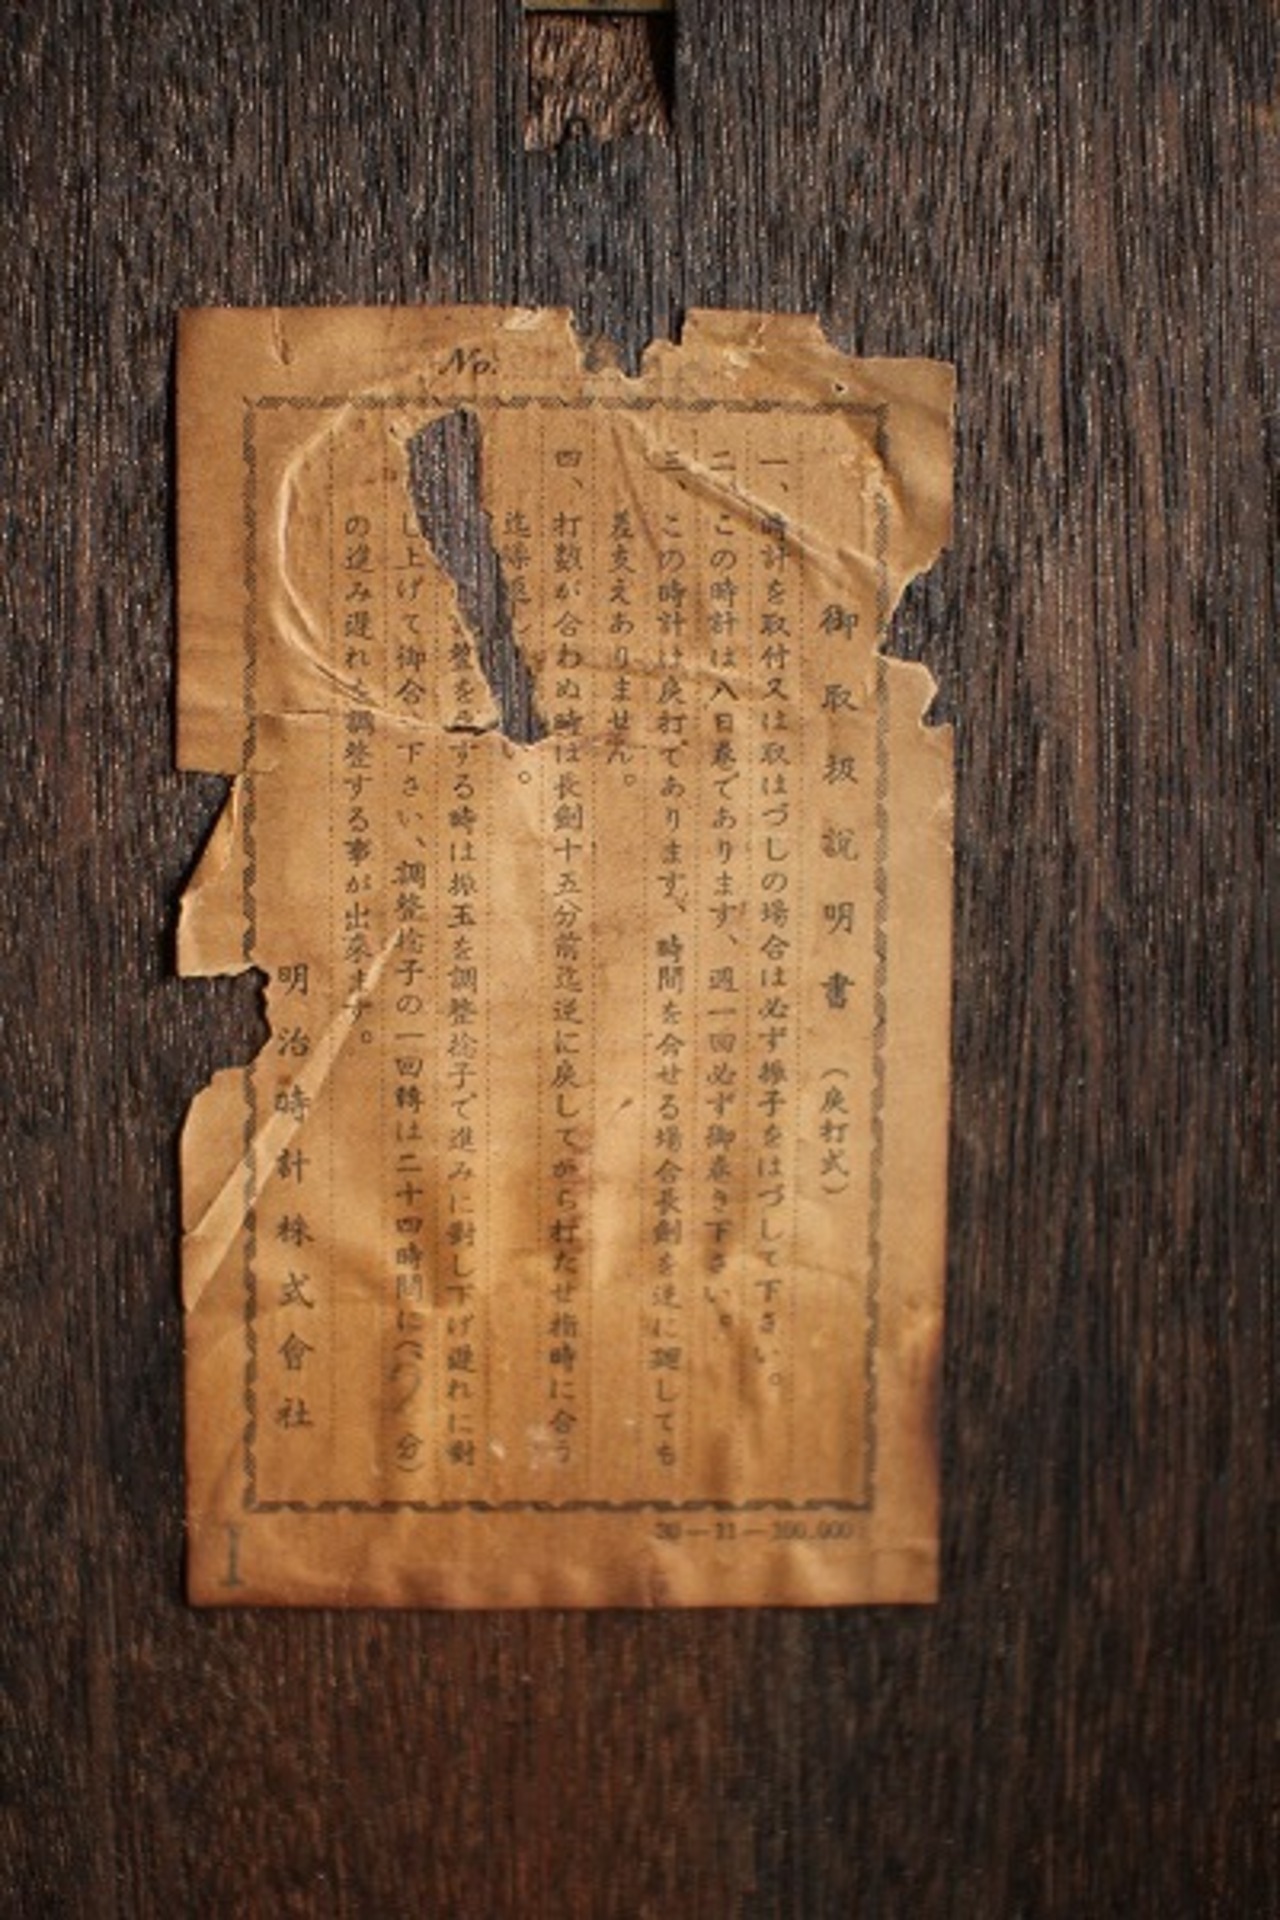 No.
御取扱説明書(戻打式)
一、時計を取付又は取はづしの場合は必ず振子をはづして下さい。
二、この時計は八日巻であります、週一回必ず御巻き下さい。
三、この時計は戻打であります、時間を合せる場合長劍を逆に廻しても
差支えありません。
四、打数が合わぬ時は長劍十五分前迄逆に戻してから打たせ指時に合う
迄繰返し。
整を
する時は振玉を調整捻子で進みに對し下げ遲れに對
し上げて御合
下さい、調整捻子の一回轉は二十四時間に(
分)
の進み遲れを調整する事が出來ます。
明治時計株式會社
30—11—100.000